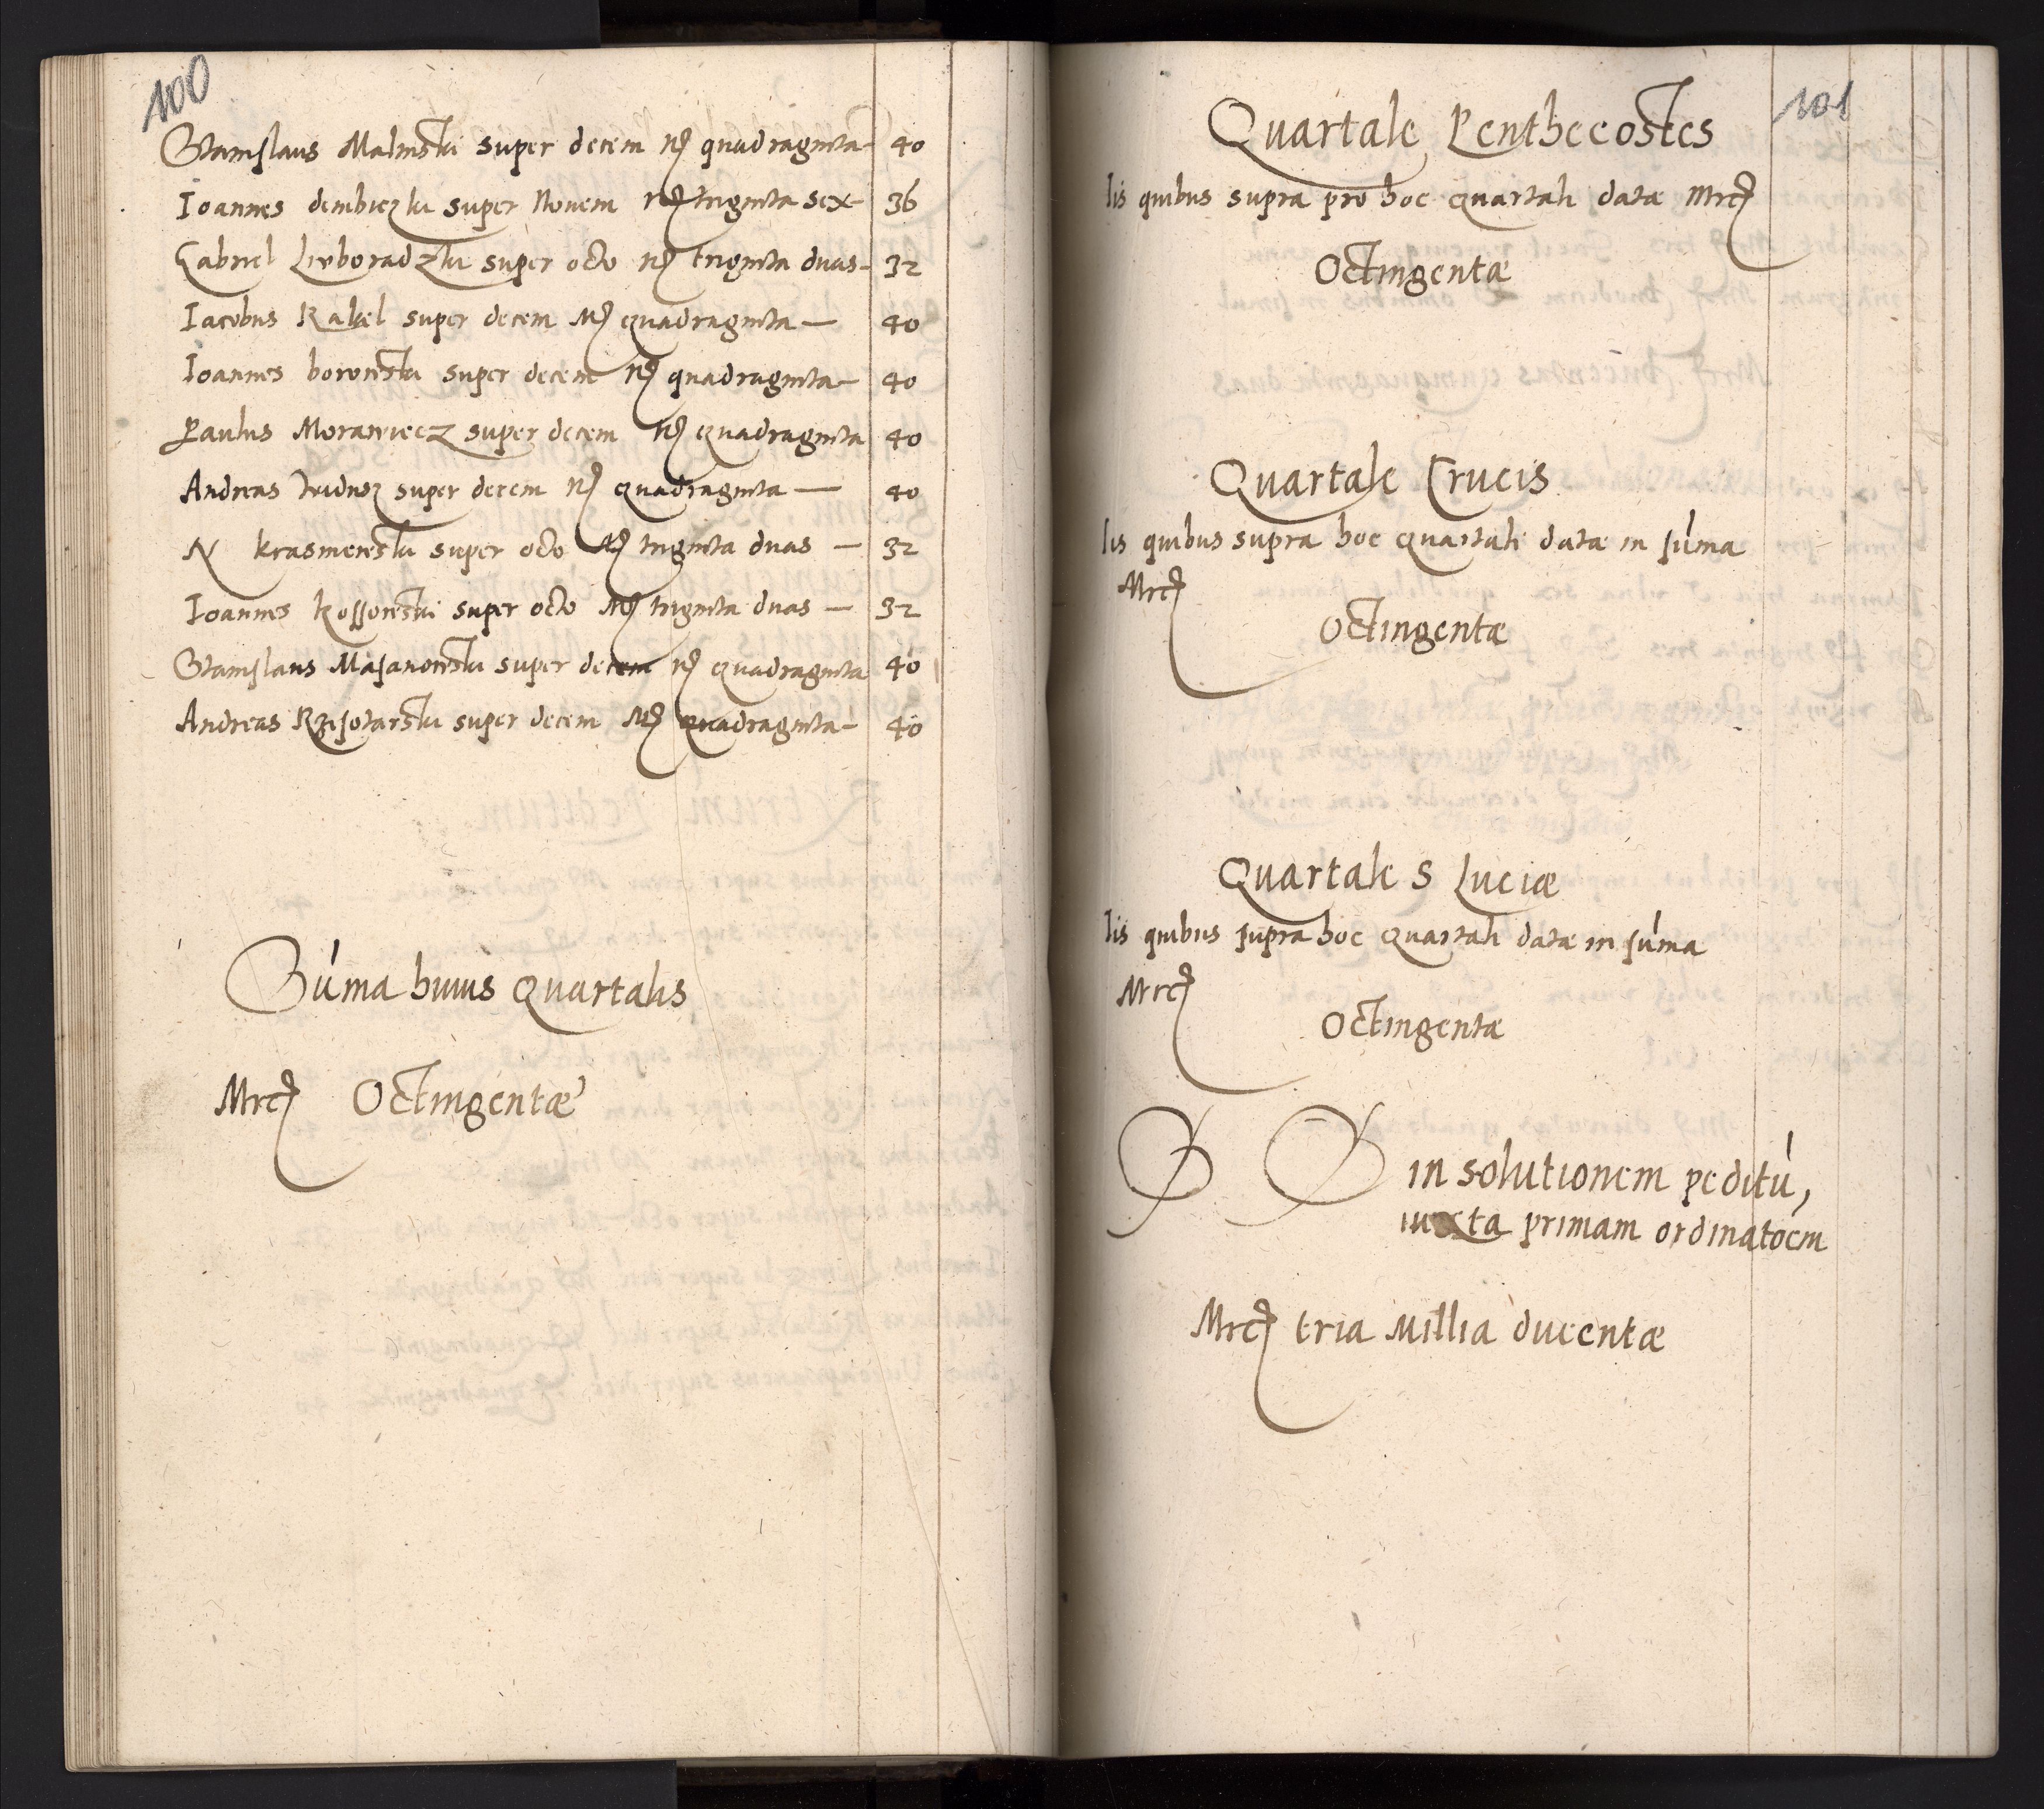 100
Stanislaus Malinski super decem Mrc quadraginta 40
Ioannes dembiczki super Novem Mrc triginta sex 36
Gabriel Lieboradzki super octo Mrc triginta duas 32
Iacobus Kakel super decem Mrc quadraginta 40
Ioannes borowski super decem Mrc quadraginta 40
Paulus Morawiecz super decem Mrc quadraginta 40
Andreas super decem Mrc quadraginta 40
N krasnienski super octo Mrc triginta duas 32
Ioannes kossowski super octo Mrc triginta duas 32
Stanislaus Masanowski super decem Mrc quadraginta 40
Andreas Rzesotarski super decem Mrc quadraginta 40
Suma huius Quartalis
Mrc Octingentæ
101
Quartale Penthecostes
Iis quibus supra pro hoc quartali datæ Mrc
Octingentæ
Quartale Crucis
Iis quibus supra hoc quartali datæ in suma
Mrc
Octingentæ
Quartale S Luciæ
Iis quibus supra hoc quartali datæ in suma
Mrc
Octingentæ
in solutionem peditu,
iuxta primam ordinatoem
Mrc tria Millia ducentæ